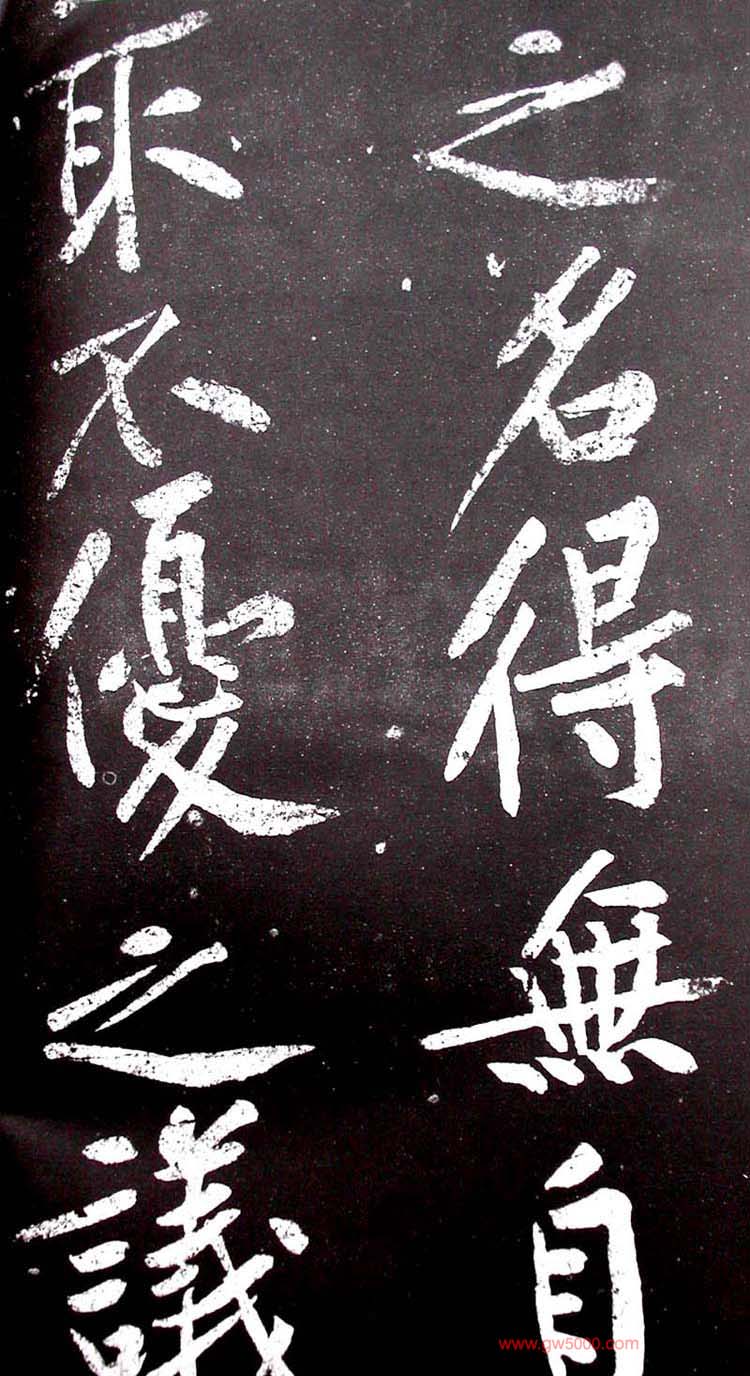 之名得無自
取不優之議
www.gw5000.com